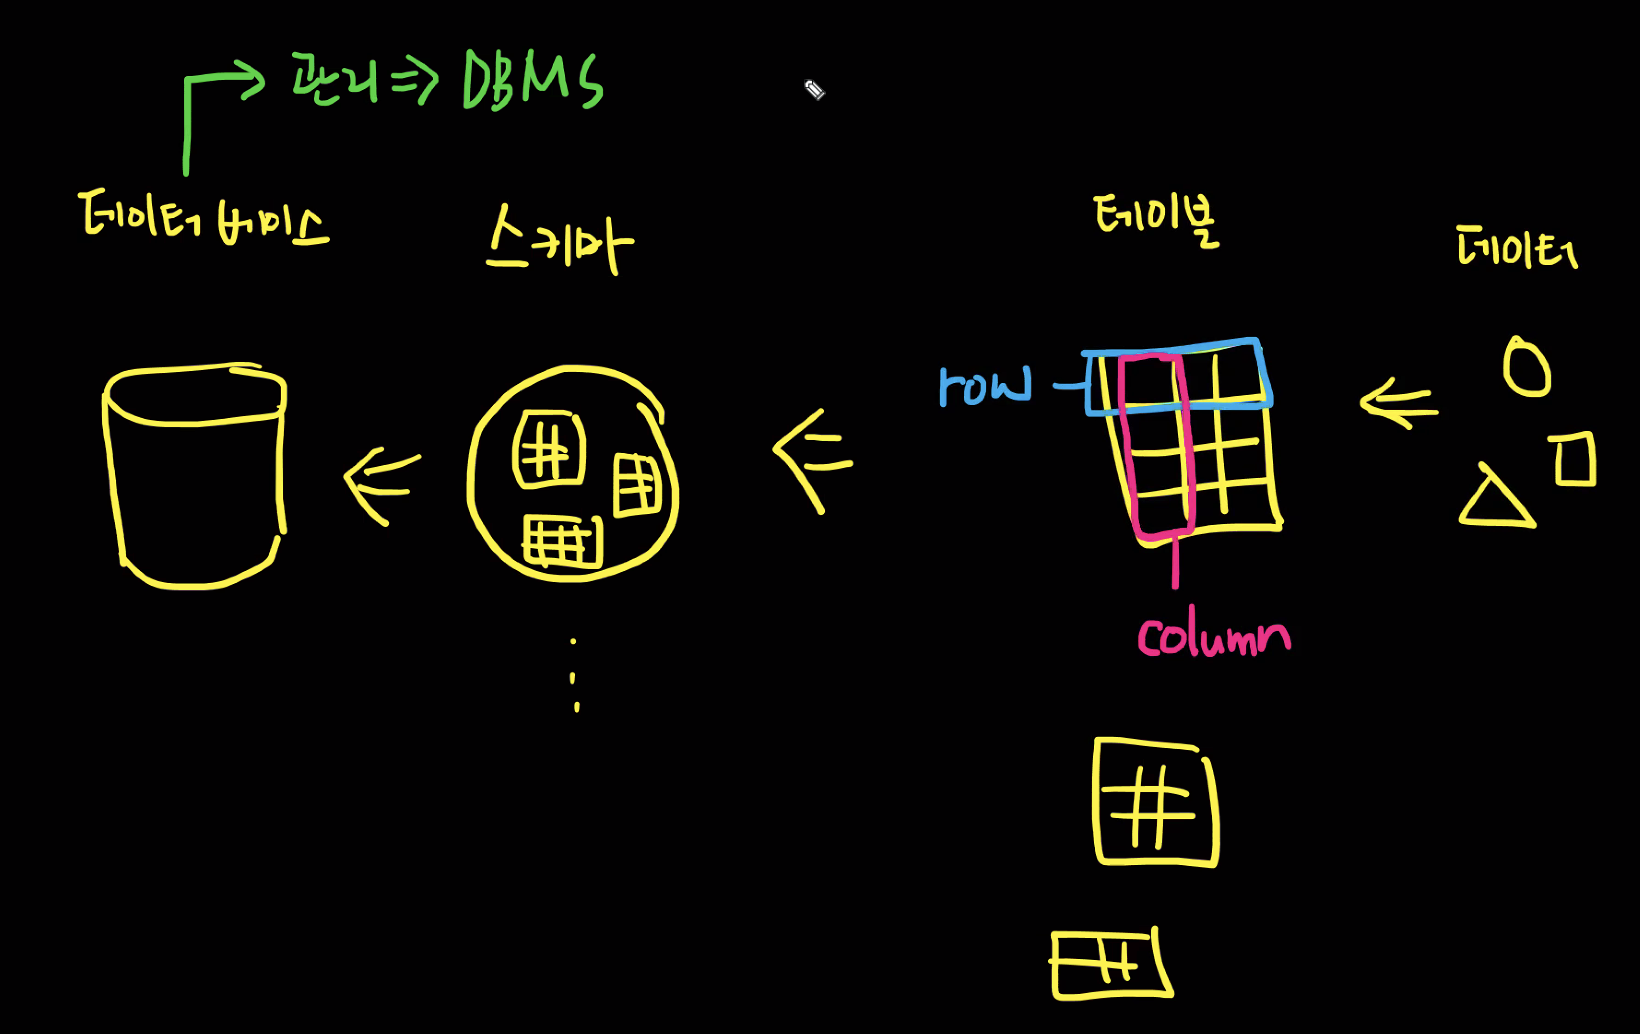 관리 ⇒ DBMS
데이터 베이스
스키마
테이블
데이터
row
column